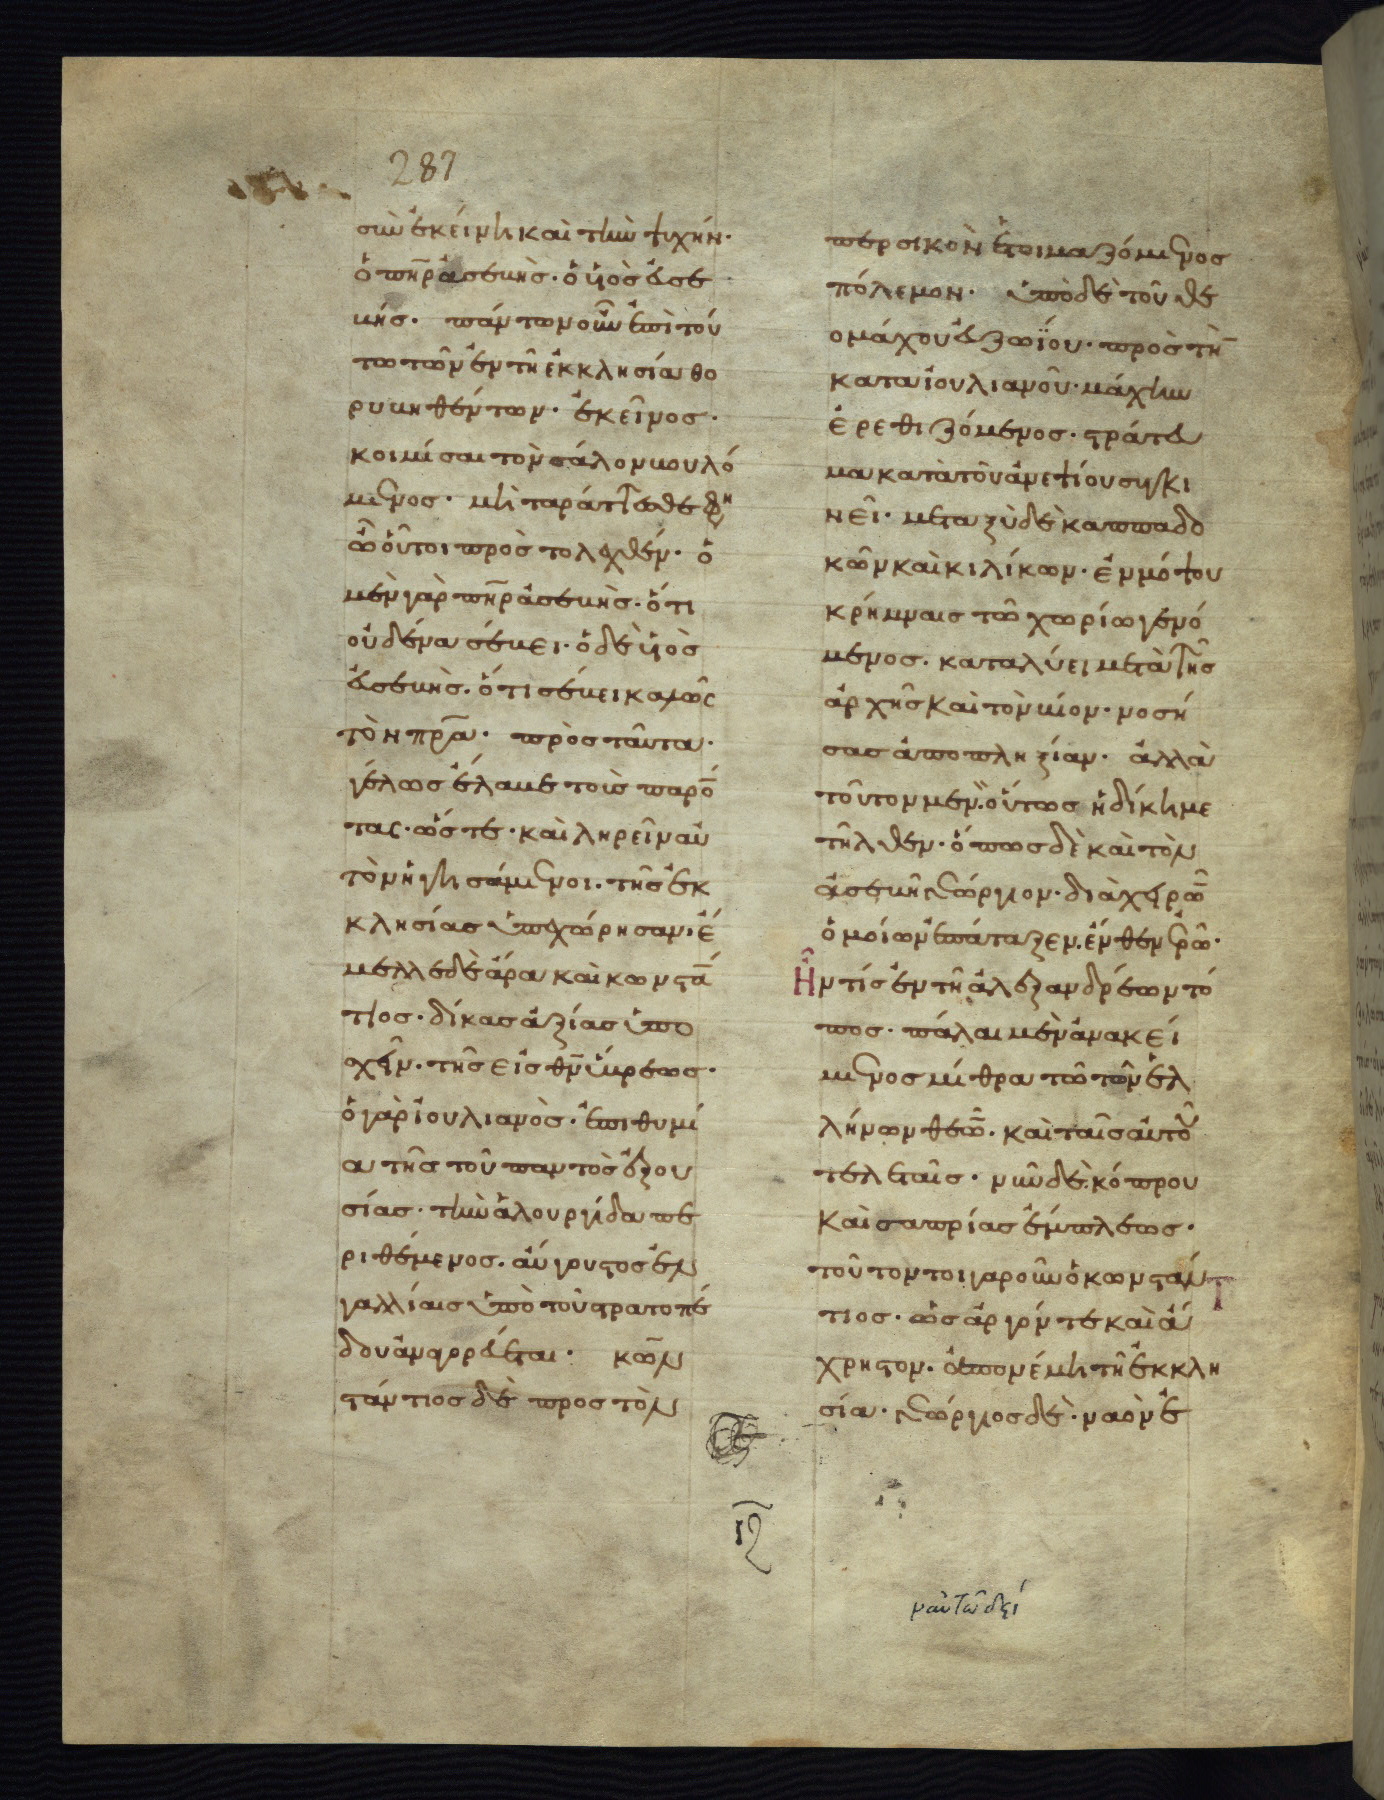 287
σὺν ἐκείνη καὶ τὴν ψυχήν·
ὁ πη̅ρ ἀσεβής· ὁ υἱὸς εὐσε
βής· πάντων οὖν ἐπὶ τού
τω τῶν ἐν τῆ ἐκκλησία θο
ρυβηθέντων· ἐκεῖνος·
κοιμίσαι τὸν σάλον βουλό
μενος· μὴ ταράττεσθε ἔφη
ὦ οὗτοι πρὸς τὸ λεχθέν· ὁ
μὲν γὰρ πη̅ρ ἀσεβὴς· ὅτι
οὐδένα σέβει· ὁ δὲ υἱὸς
εὐσεβὴς· ὅτι σέβει καλῶς
τὸν πρ̅α· πρὸς ταῦτα·
γέλως ἔλαβε τοὺς παρό
τας· ὥστε· καὶ ληρεῖν αὐ
τὸν ἡγησάμενοι· τῆς ἐκ
κλησίας ὑπεχώρησαν· ἔ
μελλε δὲ ἄρα καὶ κωνστά
τιος· δίκας ἀξίας ὑπο
σχεῖν· τῆς εἰς θν̅ ὕβρεως·
ὁ γὰρ ἰουλιανὸς· ἐπιθυμί
α τῆς τοῦ παντὸς ἐξου
σίας· τὴν ἁλουργίδα πε
ριθέμενος· αὔγουστος ἐν
γαλλίαις ὑπὸ τοῦ στρατοπέ
δου ἀναγορεύεται· κων
στάντιος δὲ προς τὸν
περσικὸν ἑτοιμαζόμενος
πόλεμον· ὑπὸ δὲ τοῦ θε
ομάχου εὐζωΐου· πρὸς τὴ̅
κατα ἰουλιανοῦ· μάχην
ἐρεθιζόμενος· στράτευ
μα κατὰ τοῦ ἀνεψίου συγκι
νεῖ· μεταξὺ δὲ καππαδο
κῶν καὶ κιλίκων· ἐν μόψου
κρήμναις τῶ χωρίω γενό
μενος· καταλύει μετὰ τῆς
ἀρχῆς καὶ τὸν βίον· νοσή
σας ἀποπληξίαν· ἀλλὰ
τοῦτον μὲν οὕτως ἡ δίκη με
τῆλθεν· ὅπως δὲ καὶ τὸν
ἀσεβῆ γεώργιον· διὰ χειρῶ̅
ὁμοίων ἐπάταξεν· ἔνθεν ἐρῶ·
Ἦν τίς ἐν τῆ ἀλεξανδρέων τό
πος· πάλαι μὲν ἀνακεί
μενος μίθρα τῶ τῶν ἑλ
λήνων θεῶ̅· καὶ ταῖς αὐτοῦ
τελεταῖς· νῦν δὲ κόπρου
καὶ σαπρίας ἔμπλεως·
τοῦτον τοιγαροῦν ὁ κωνσταν
τιος· ὡς ἀργόν τε καὶ ἄ
χρηστον· ἀπονέμη τῆ ἐκκλη
σία· γεώργιος δὲ· ναὸν ἐ
ναυτῶ δεί